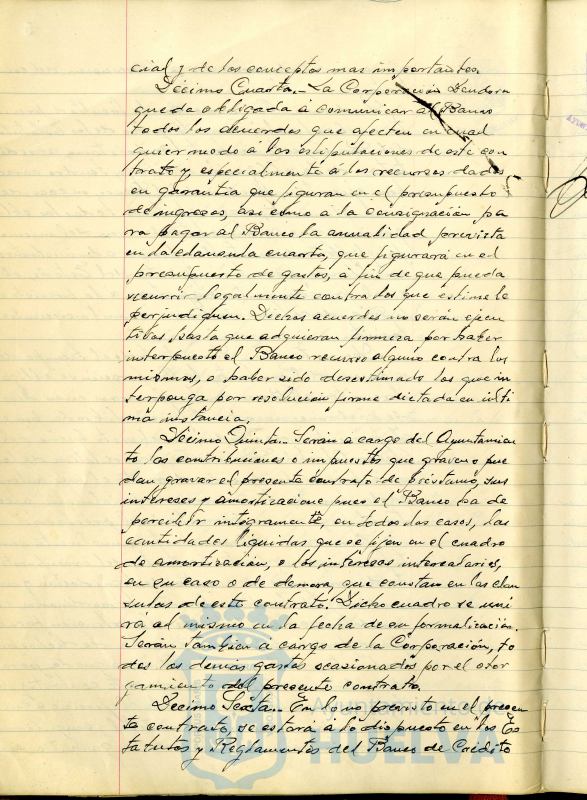 cial y de los conceptos mas importantes.
Décimo Cuarta.- La Corporación Deudora
queda obligada á comunicar al Banco
todos los acuerdos que afecten en cual
quier modo á las estipulaciones de este con
trato y, especialmente a los recursos dados
en garantia que figuran en el presupuesto
de ingresos, asi como a la consignación pa
ra pagar al Banco la anualidad prevista
en la clausula cuarta, que figurará en el
presupuesto de gastos, á fin de que pueda
recurrir legalmente contra los que estime le
perjudiquen. Dichos acuerdos no serán ejecu
tivos hasta que adquieran firmeza por haber
interpuesto el Banco recurso alguno contra los
mismos, o haber sido desestimado los que in
terponga por resolución firme dictada en últi
ma instancia.
Décimo Quinta.- Serán a cargo del Ayuntamien
to las contribuciones o impuestos que graven o pue
dan gravar el presente contrato de préstamo, sus
intereses y amortización pues el Banco ha de
percibir íntegramente, en todos los casos, las
cantidades líquidas que se fijen en el cuadro
de amortización, o los intereses intercalarios,
en su caso o de demora, que constan en las clau
sulas de este contrato. Dicho cuadro se uni
rá al mismo en la fecha de su formalización.
Serán tambien á cargo de la Corporación, to
dos los demás gastos ocasionados por el otor
gamiento del presente contrato.
Décimo Sexta.- En lo no previsto en el presen
te contrato, se estará a lo dispuesto en los Es
tatutos y Reglamentos del Banco de Crédito
HUELVA